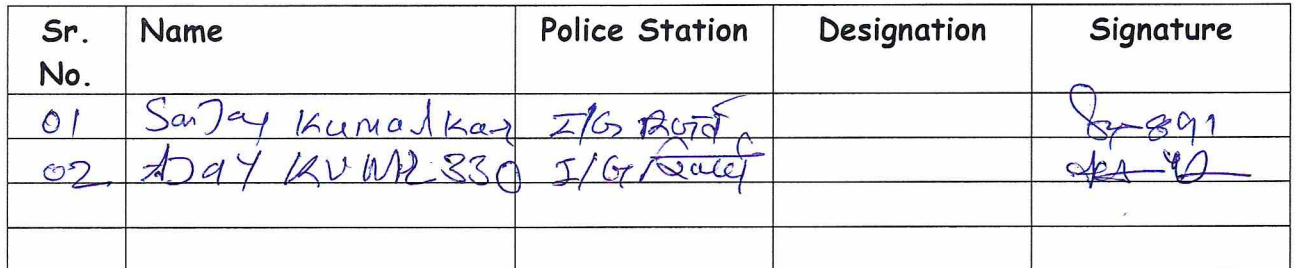 Sr. No. Name Police Station Designation Signature
01 SanJay Kumar I/G
02. AJaY KUMR 330 I/G